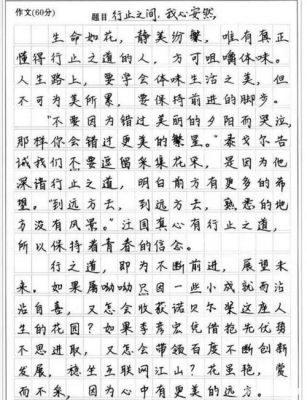 作文(60分)
题目 行止之间,我心安然
生命如花,静美纷繁,唯有真正
懂得行止之道的人,方可咀嚼体味。
人生路上,要学会体味生活之美,但
不可为美所累,要保持前进的脚步。
“不要因为错过美丽的夕阳而哭泣,
那样你会错过更美的繁星。”泰戈尔告
诫我们不要逗留采集花朵,是因为他
深谙行止之道,明白前方有更多的希
望。“到远方去,到远方去,熟悉的地
方没有风景。”汪国真心有行止之道,
所以保持着青春的信念。
行之道,即为不断前进,展望未
来。如果屠呦呦只因一些小成就而沾
沾自喜,又怎会收获诺贝尔奖这座人
生的花园?如果李彦宏凭借抢先优势
不思进取,又怎会带领百度不断创新
发展,稳坐互联网江山?花虽艳,赏
而不采,因为心中有更美的远方。